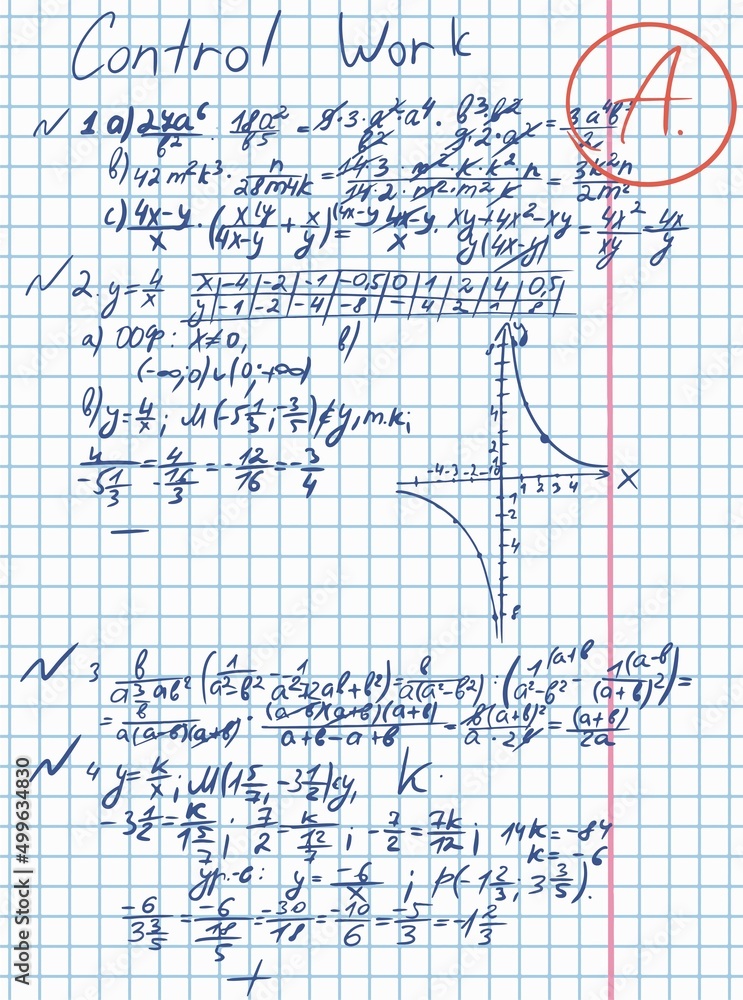 Control Work
A.
1 a) 27a⁶/b² : 18a²/b⁵ = 9·3·a²·a⁴/b² · b³·b²/9·2·a² = 3a⁴b³/2
в) 42m²k³ · n/28m⁴k = 14·3·m²·k·k²·n/14·2·m²·m²·k = 3k²n/2m²
c) 4x-y/x · (xy/4x-y + x/y) = 4x-y/x · xy+4x²-xy/y(4x-y) = 4x²/xy = 4x/y
2. y=4/x
x -4 -2 -1 -0,5 0 1 2 4 0,5
y -1 -2 -4 -8 - 4 2 1 8
a) ООФ: x≠0, в)
(-∞;0)∪(0;+∞)
в) y=4/x; M(-5 1/3; -3/5)∉y, т.к;
4/-5 1/3 = 4/-16/3 = -12/16 = -3/4
—
y
8
4
2
1
-4 -3 -2 -1 0 1 2 3 4 X
1
2
4
8
3 (1/a²-b² - 1/a²+2ab+b²) = b/a(a²-b²) : (1(a+b/a²-b² - 1(a-b/(a+b)²) =
= b/a(a-b)(a+b) · (a-b)(a+b)(a+b)/a+b-a+b = b(a+b)²/a·2b = (a+b)/2a
4 y=k/x; M(1 5/7, -3 1/2)∈y, K.
-3 1/2 = k/1 5/7; 7/2 = k/12/7; -7/2 = 7k/12; 14k=-84
k=-6
ур-в: y=-6/x; P(-1 2/3; 3 3/5).
-6/3 3/5 = -6/18/5 = -30/18 = -10/6 = -5/3 = -1 2/3
+
Adobe Stock | #499634830